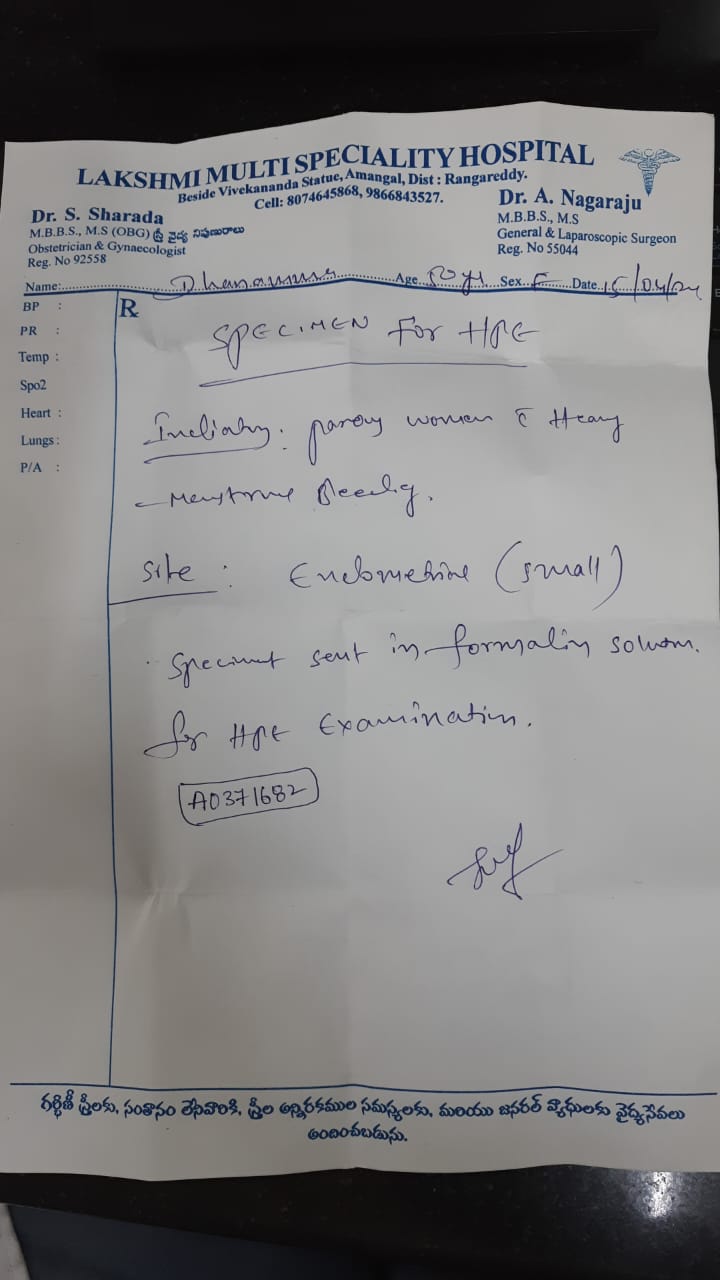 LAKSHMI MULTI SPECIALITY HOSPITAL
Beside Vivekananda Statue, Amangal, Dist : Rangareddy.
Cell: 8074645868, 9866843527.
Dr. S. Sharada
M.B.B.S., M.S (OBG) స్త్రీ వైద్య నిపుణురాలు
Obstetrician & Gynaecologist
Reg. No 92558
Dr. A. Nagaraju
M.B.B.S., M.S
General & Laparoscopic Surgeon
Reg. No 55044
Name: Age 50 yr Sex F Date 15/04/24
BP :
PR :
Temp :
Spo2
Heart :
Lungs :
P/A :
R
SPECIMEN For HPE
women c̄ Heavy
Site : (small)
sent in formalin
for HPE Examination.
A0371682
గర్భిణీ స్త్రీలకు, సంతానం లేనివారికి, స్త్రీల అన్నిరకముల సమస్యలకు, మరియు జనరల్ వ్యాధులకు వైద్యసేవలు
అందించబడును.